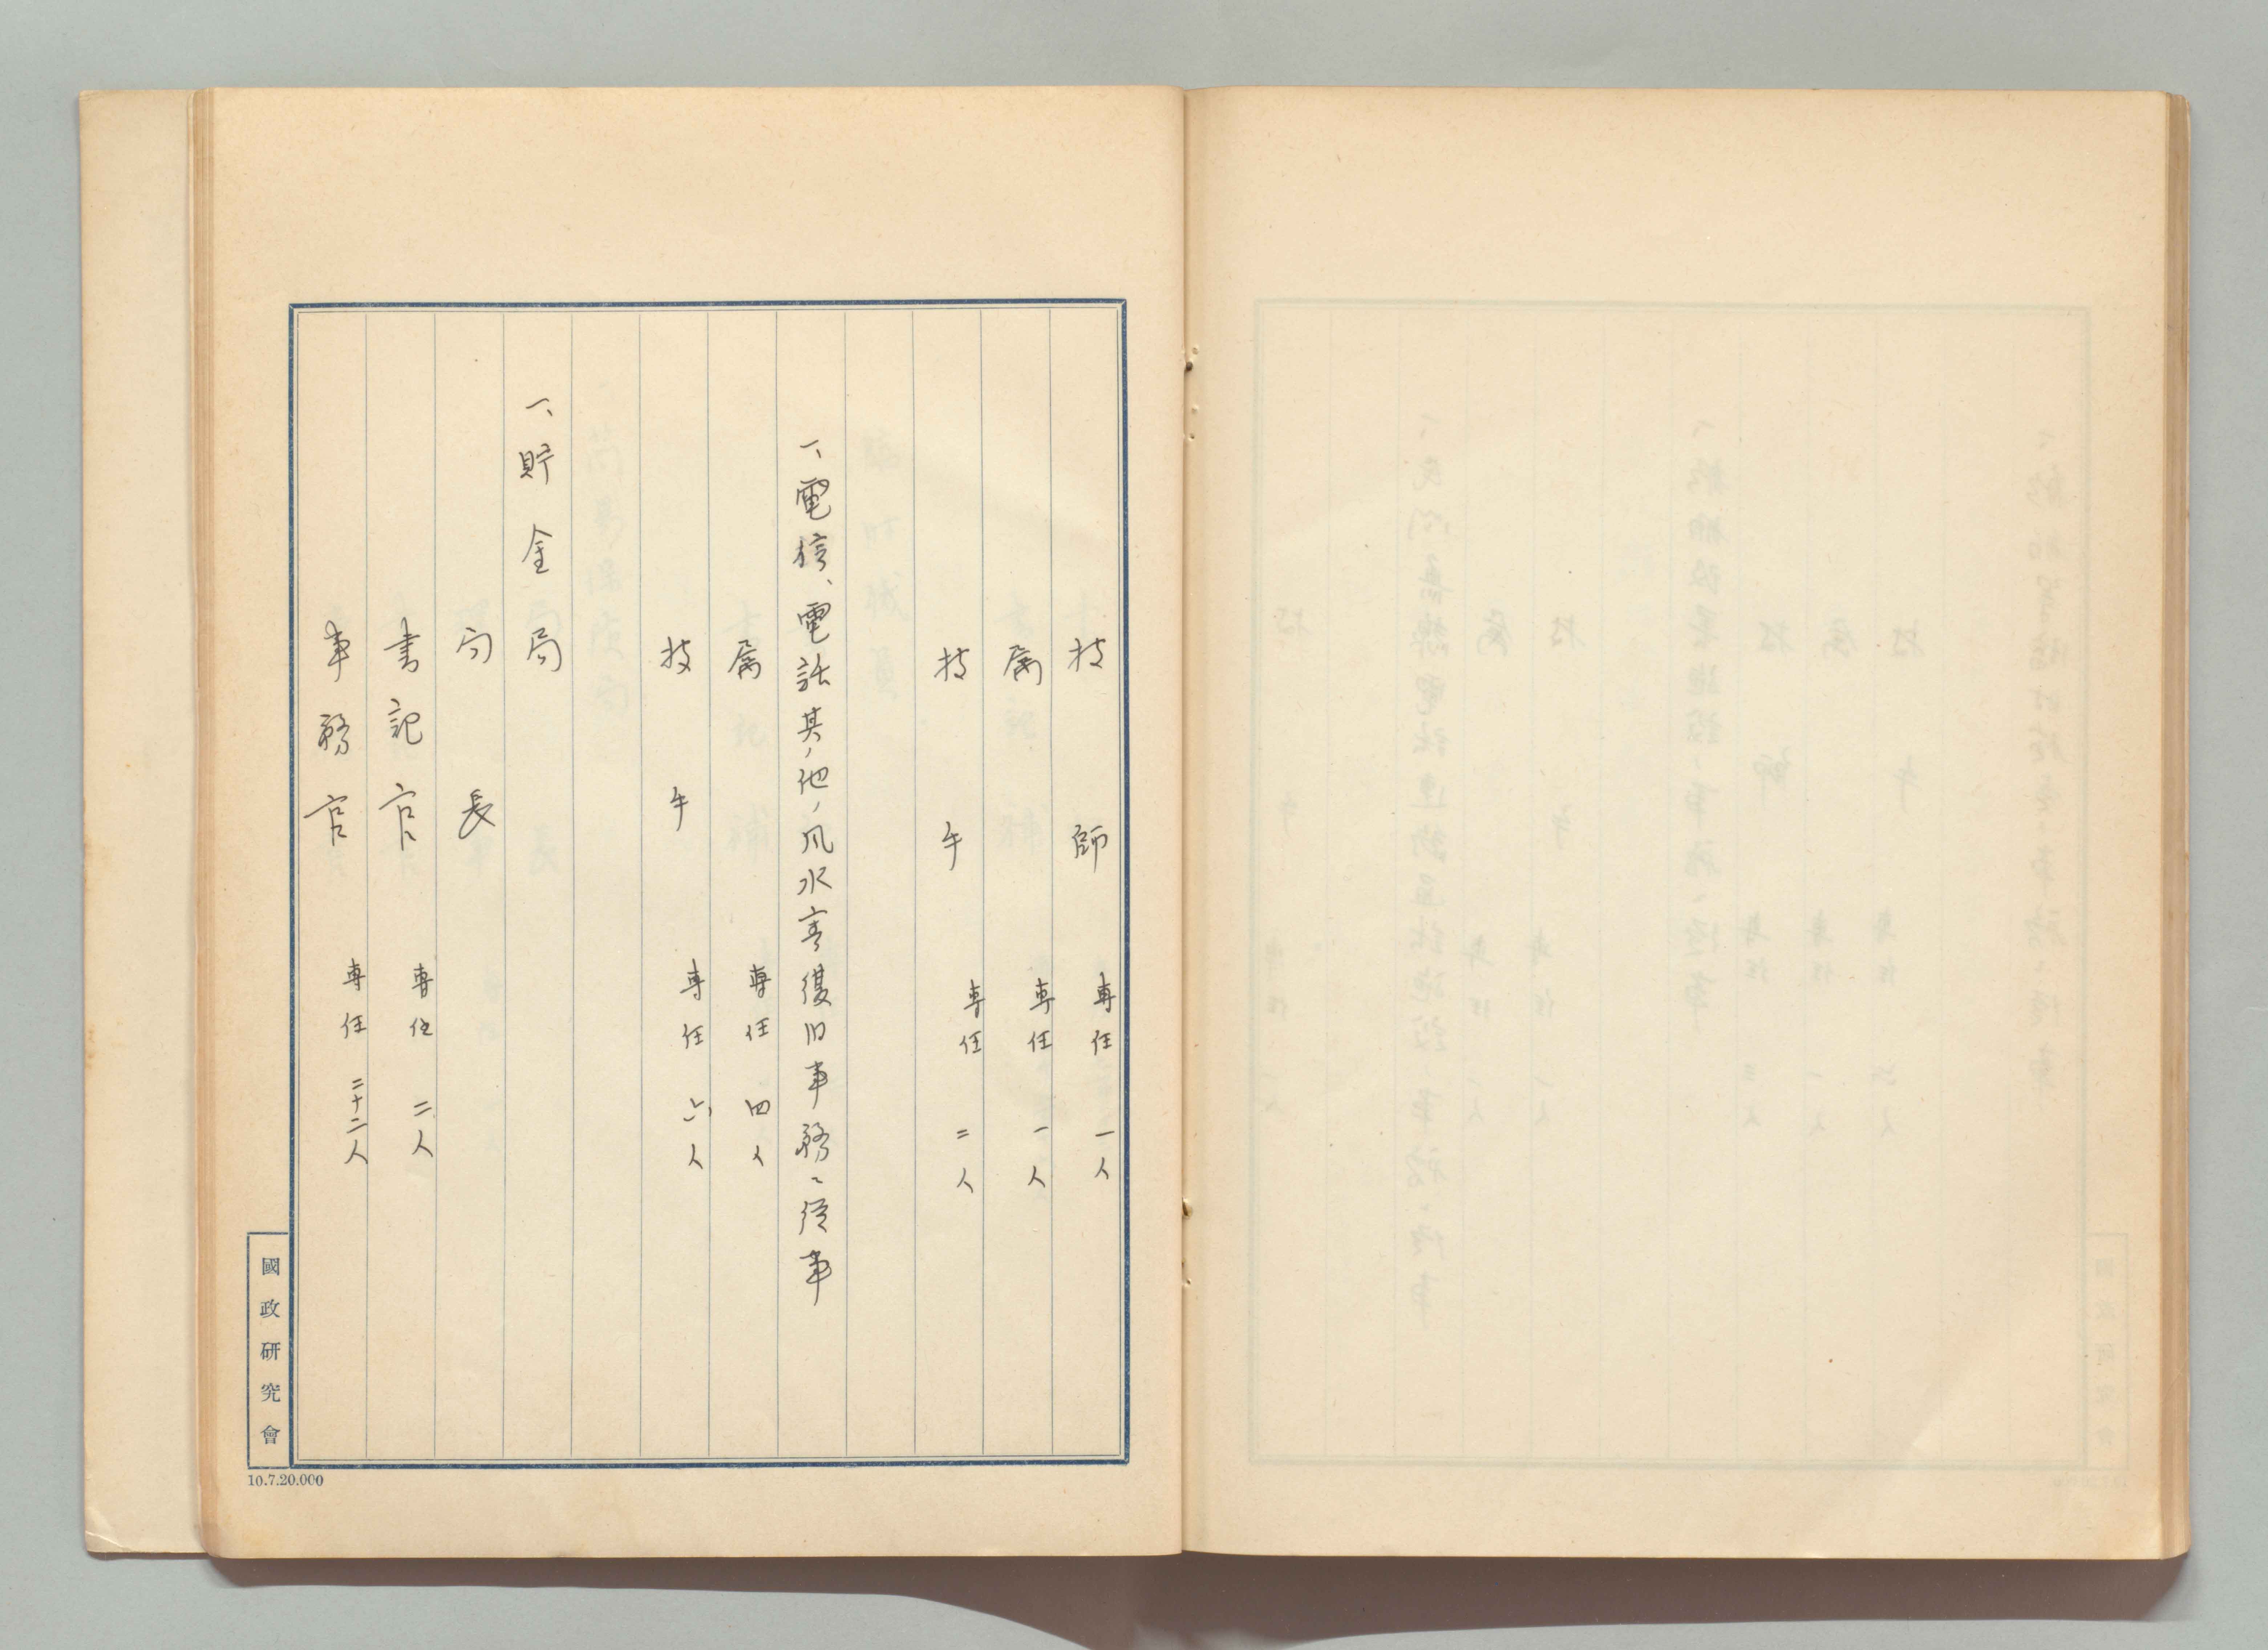 技師 専任 一人
属 専任 一人
技手 専任 二人
一、電信、電話其ノ他ノ風水害復旧事務ニ従事
属 専任 四人
技手 専任 六人
一、貯金局
局長
書記官 専任 二人
事務官 専任 二十二人
國政研究會
10.7.20.000